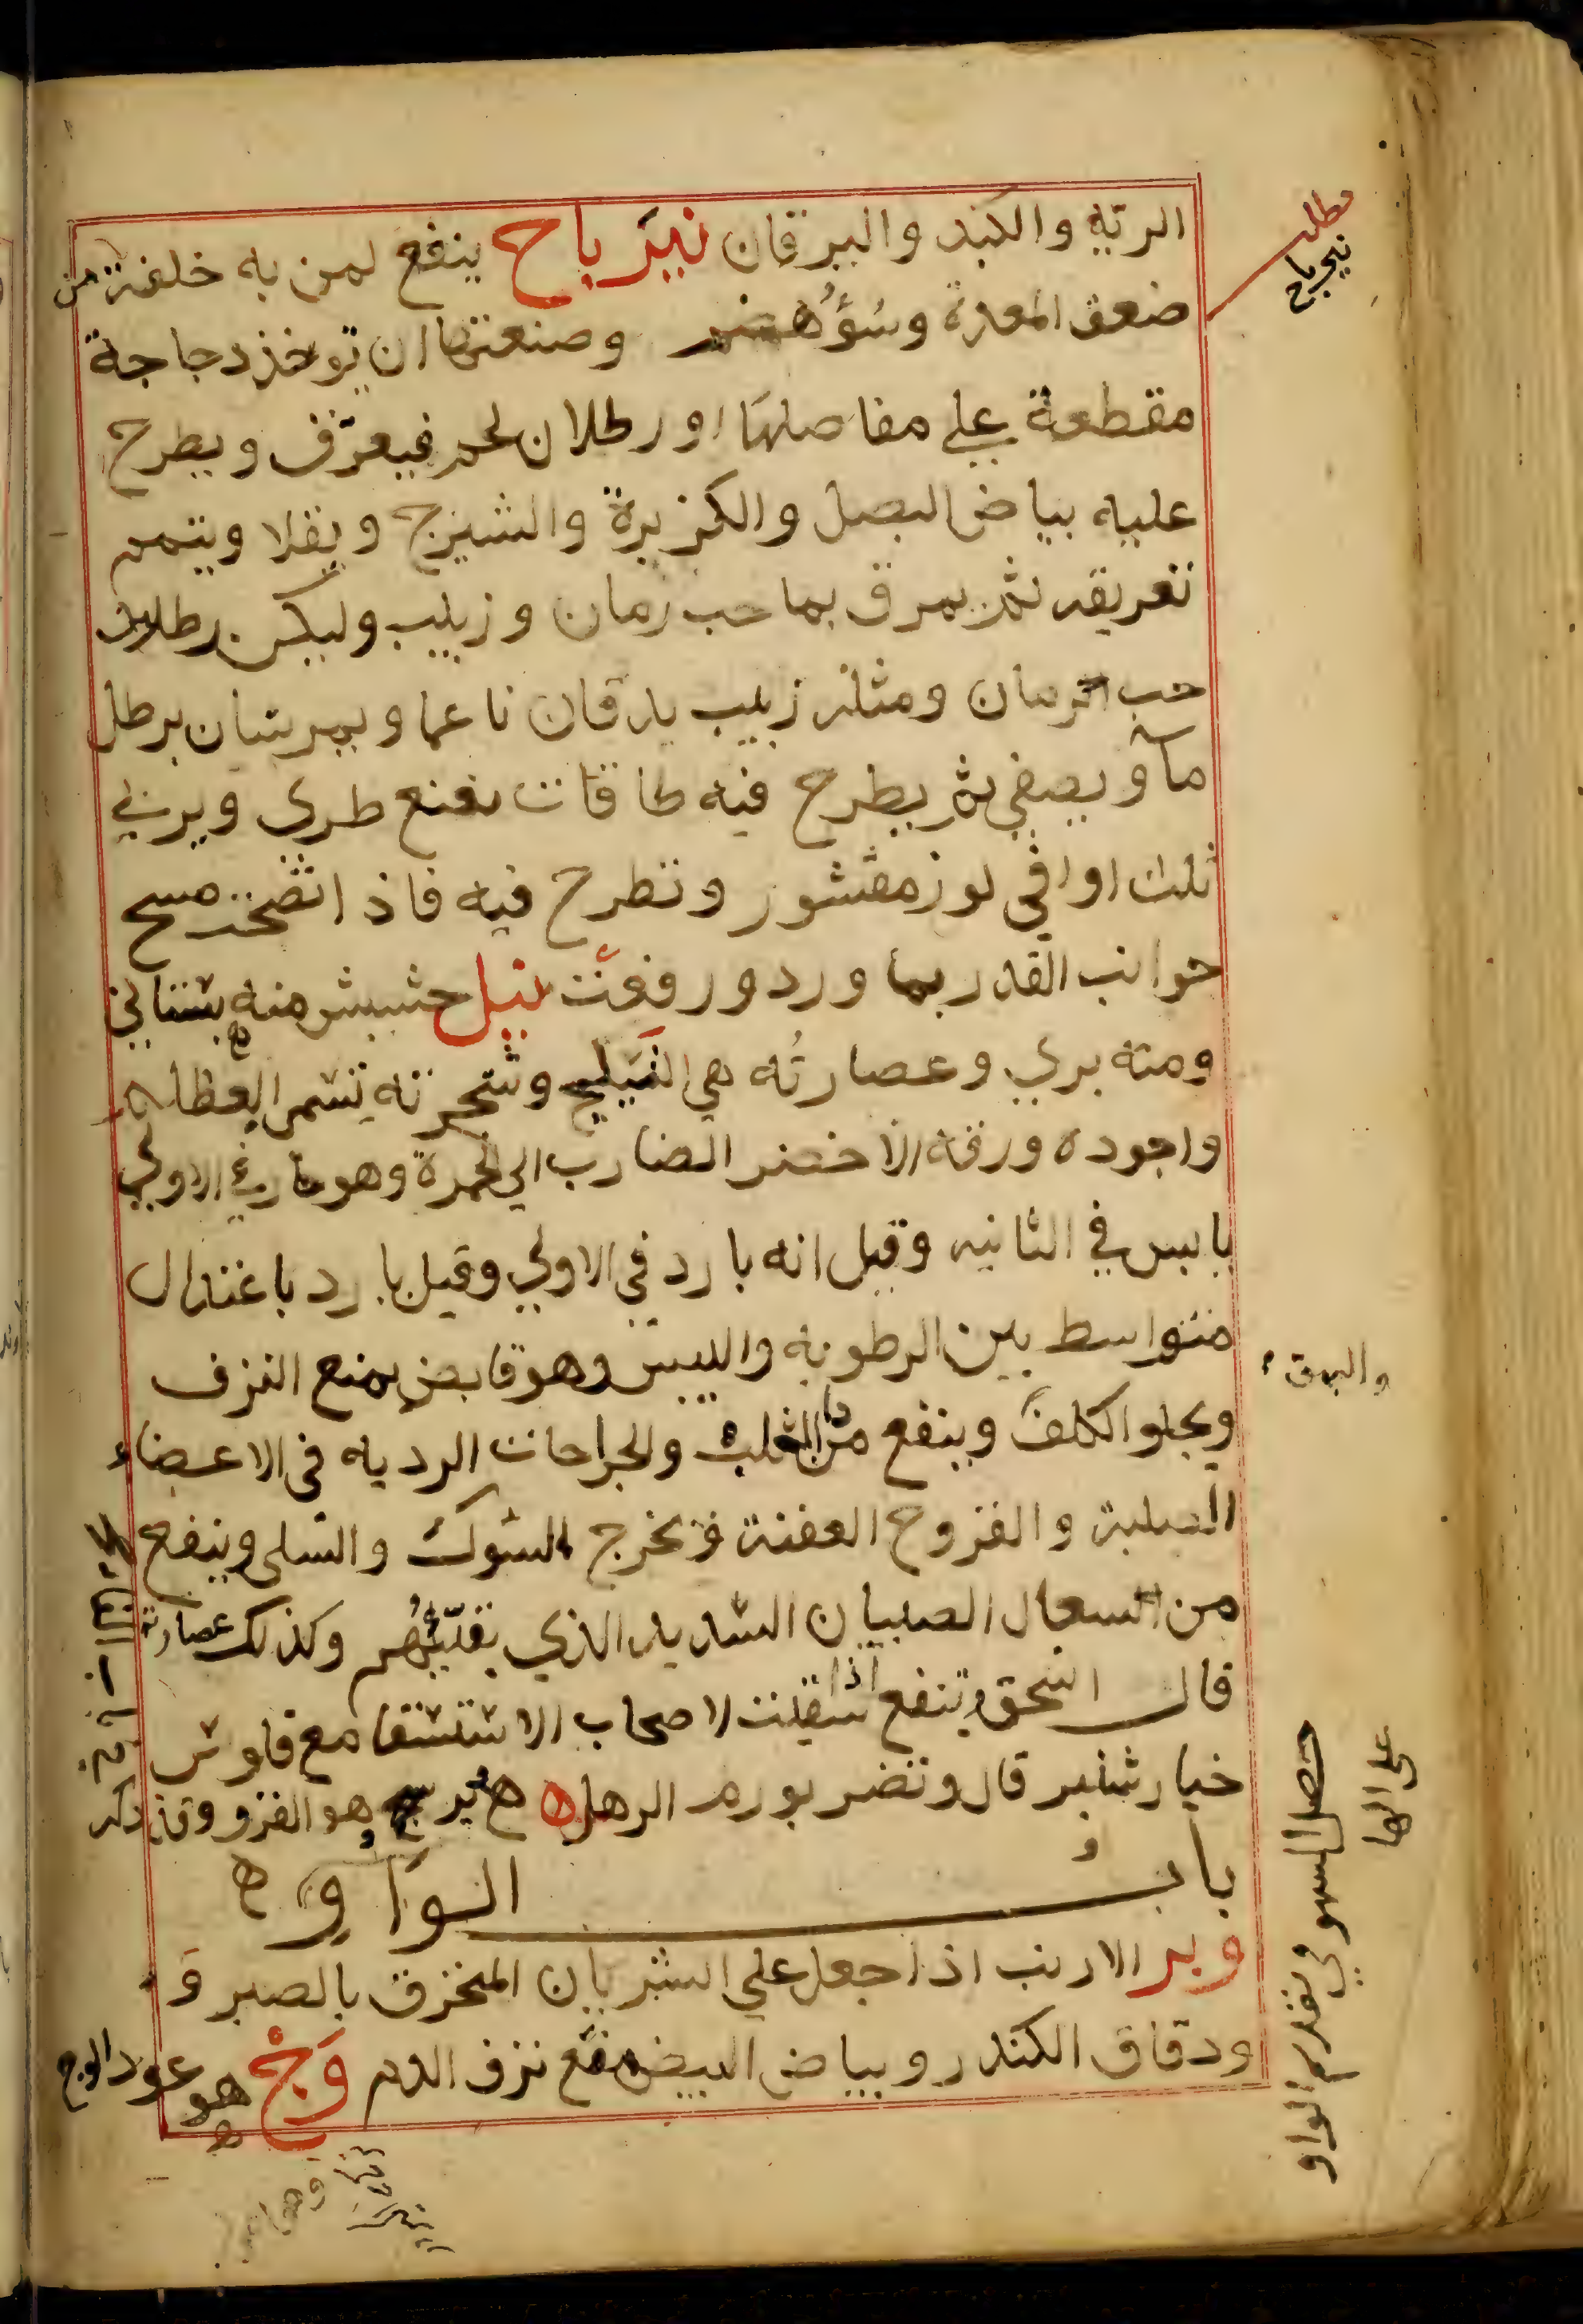 الريه والكبد واليرقان نيرباج ينفع لمن به خلفة من
ضعف المعدة وسُؤُ هضم وصنعتها ان توخذ دجاجة
مقطعة علي مفاصلها او رطلان لحم فيعرّق ويطرح
عليه بياض البصل والكزبرة والشيرج ويقلا ويتمم
تعريقه ثم يمرق بما حب رمان وزبيب وليكن رطلان
حب الرمان ومثله زبيب يدقان ناعما ويمرسان برطل
مآ ويصفي ثم يطرح فيه طاقات نعنع طري ويربي
ثلث اواقي لوز مقشور وتطرح فيه فاذ انضجت مسح
جوانب القدر بما ورد ورفعت نيل حشيش منه بستاني
ومنه بري وعصارتُه هي النيلج وشجرته تسمي العظلم
واجوده ورقه الاخضر الضارب الي الحمرة وهو حار في الاولي
يابس في الثانيه وقيل انه بارد في الاولي وقيل بارد باعتدال
متواسط بين الرطوبه واليبس وهو قابض يمنع النزف
ويجلو الكلف وينفع من دا الثعلب والجراحات الرديه في الاعضاء
الصلبة والقروح العفنة ويخرج الشوك والسلى وينفع
من السعال الصبيان الشديد الذي يقيّئهم وكذلك عصارته
قال اسحق وتنفع اذا سقيت لاصحاب الاستسقا مع فلوس
خيارشنبر قال وتضر بورم الرهل ه هو الفزو وقد ذكر
بابُ الواو ه
وبر الارنب اذا جعل علي الشريان المنخرق بالصبر وَ
ودقاق الكندر وبياض البيض نفع نزف الدم وَجْ هو عود الوج
مطلب
نيرباج
والبهق
حصل السهو في تقديم الواو
على الها